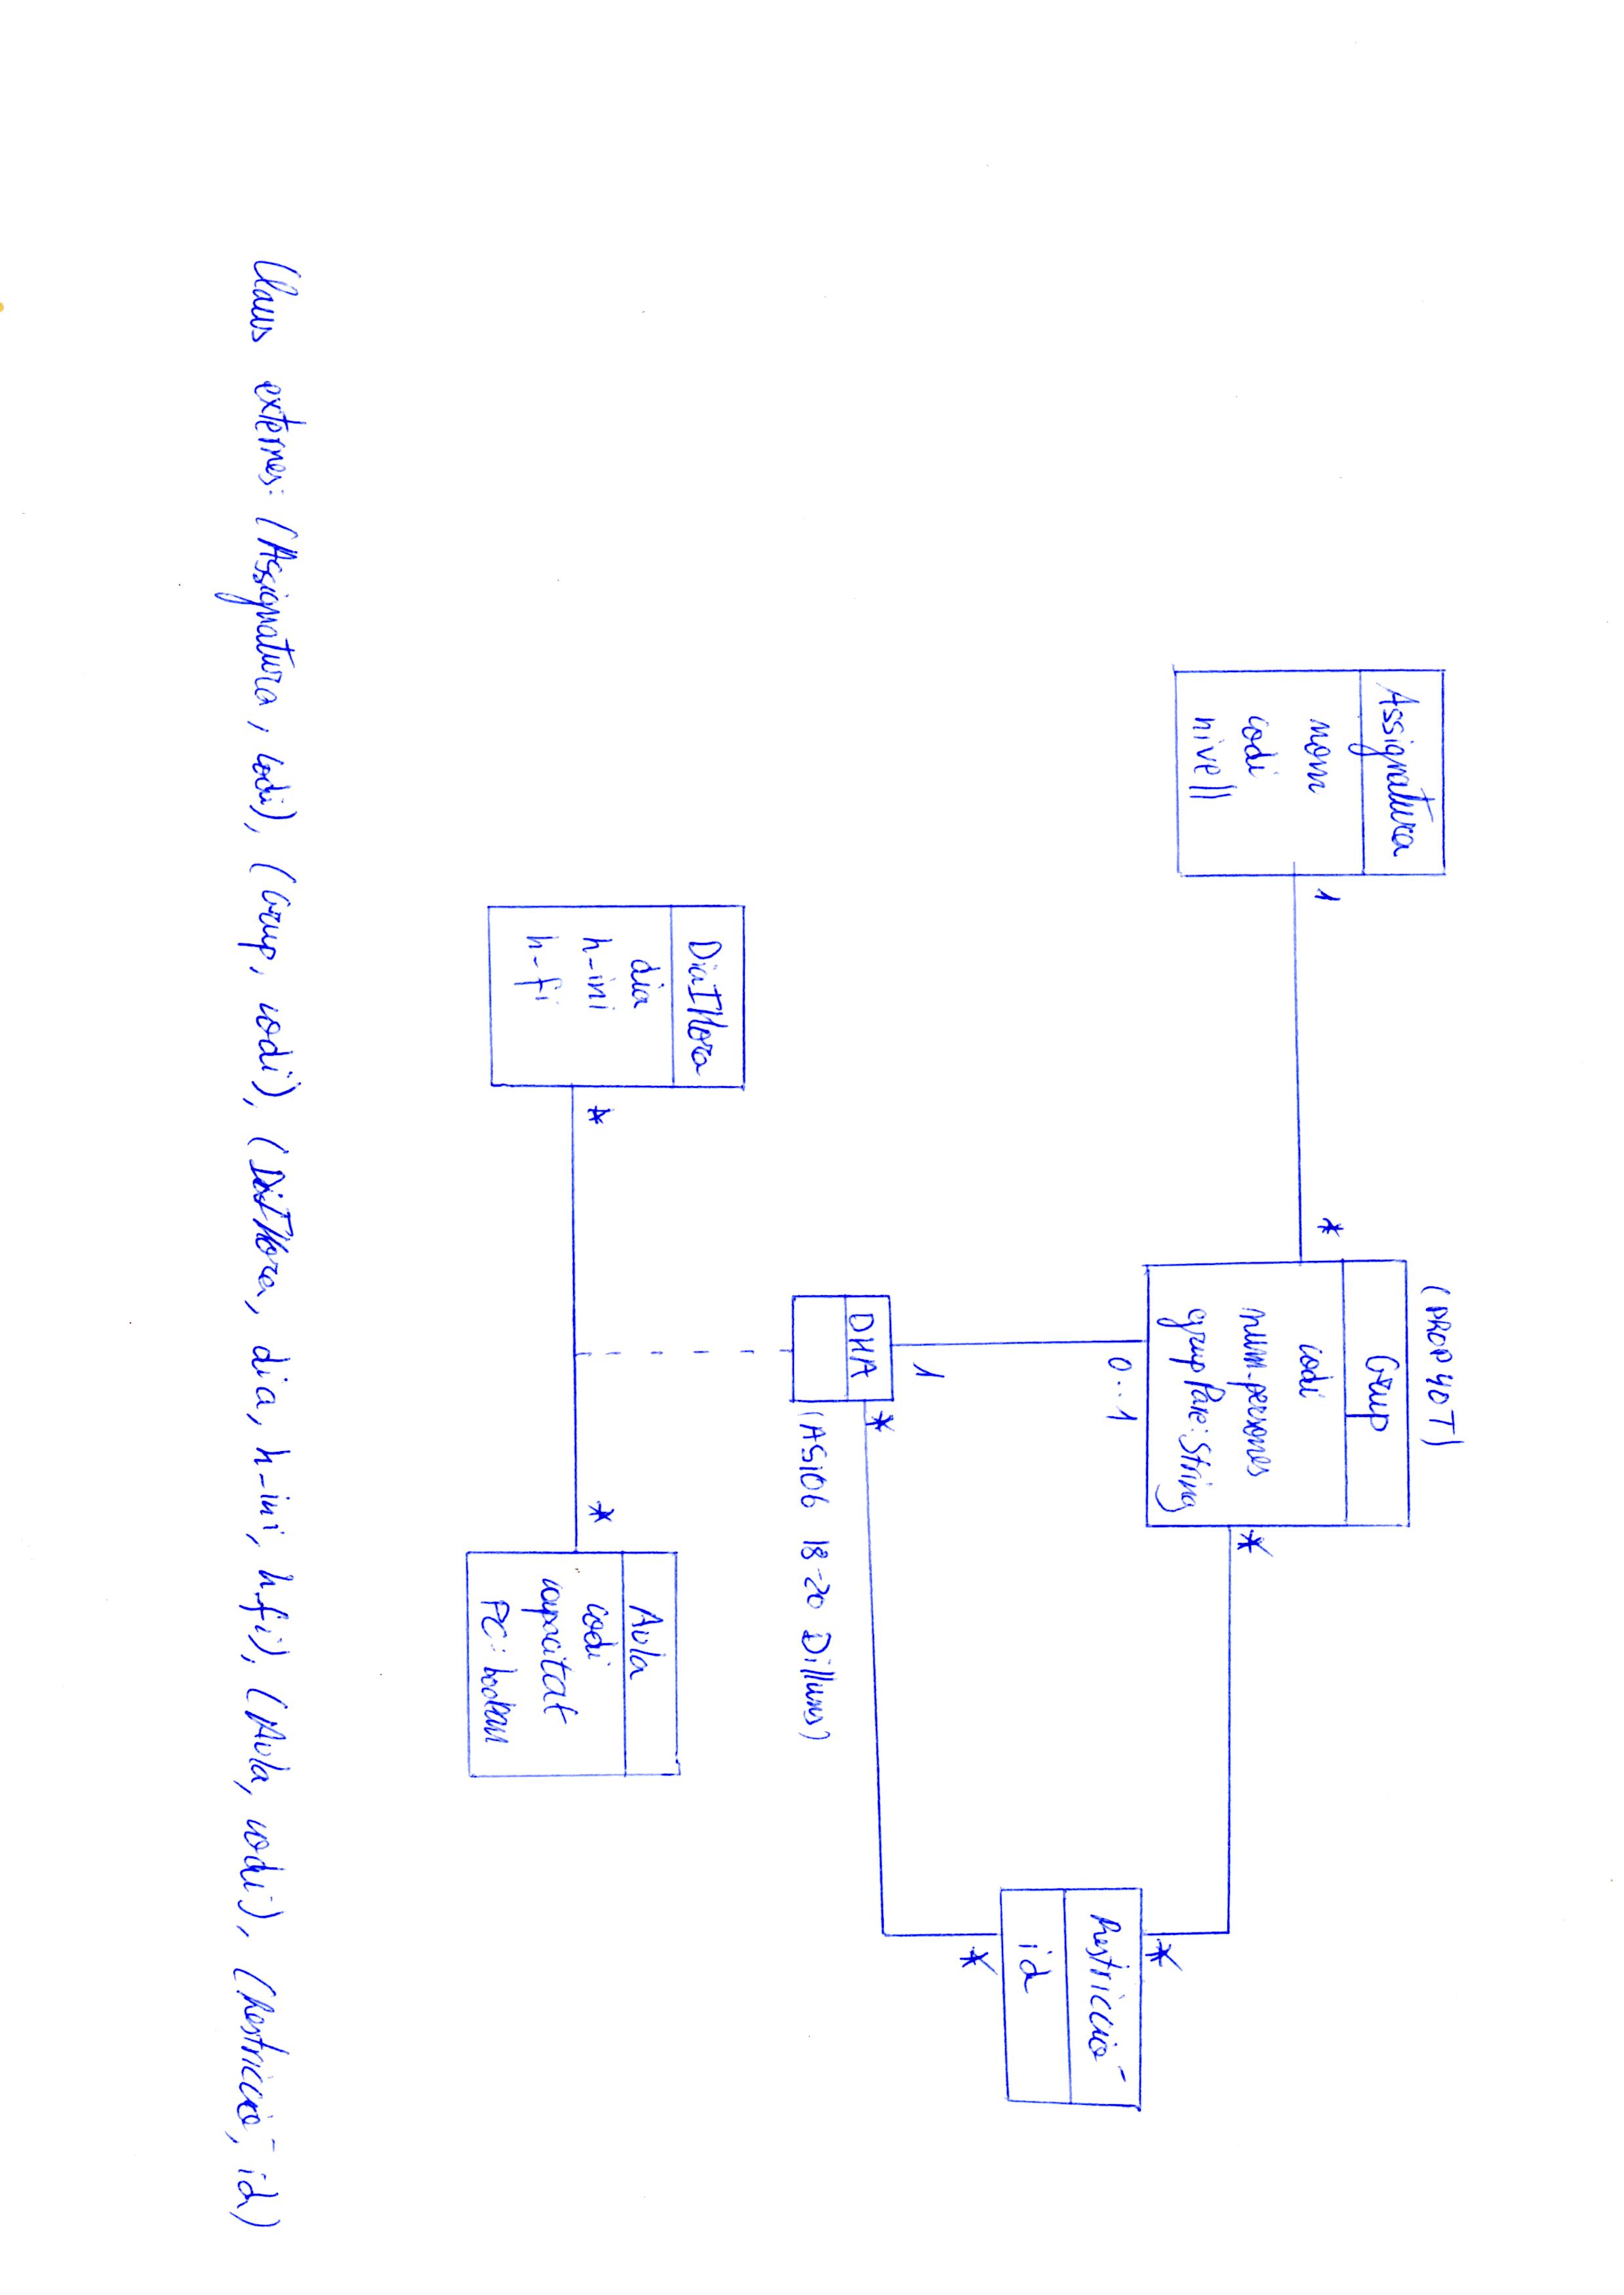 (PROP 40 T)
Assignatura
nom
codi
nivell
1
*
Grup
codi
num-persones
grupPare: String
*
*
Restricció
id
*
0..1
1
DHA
*
(A5106 18-20 Dilluns)
DiaIHora
dia
h-ini
h-fi
*
*
Aula
codi
capacitat
PC: boolean
Claus externes: (Assignatura, codi), (Grup, codi), (DiaIHora, dia, h-ini, h-fi), (Aula, codi), (Restricció, id)